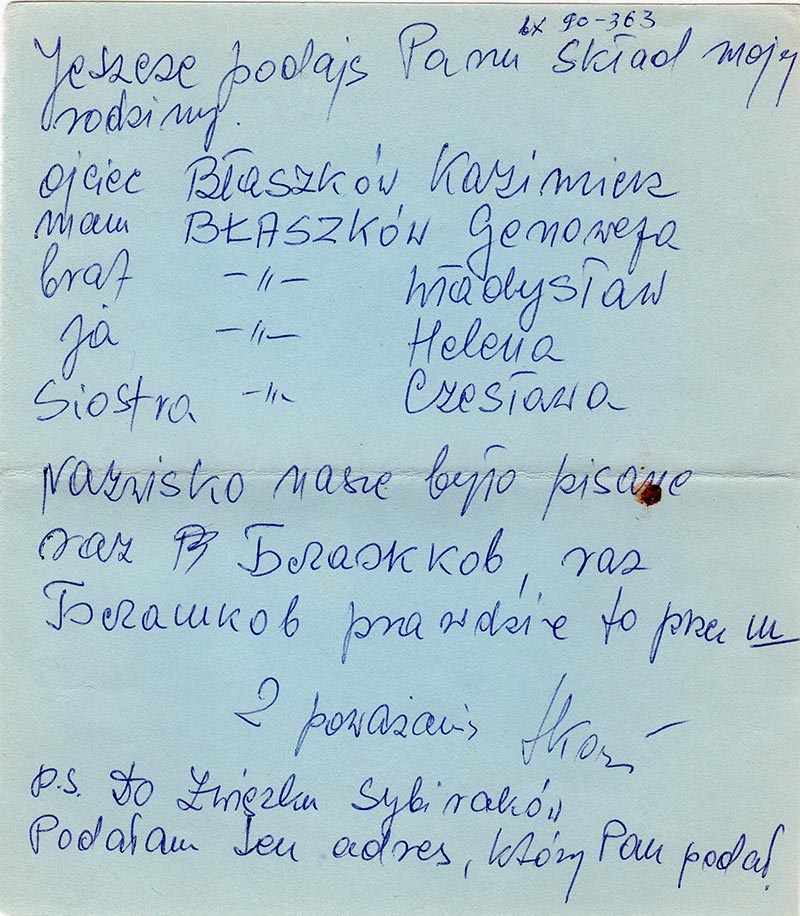 90-363
Jeszcze podaję Panu skład mojej
rodziny.
ojciec Błaszków Kazimierz
mam BŁASZKÓW Genowefa
brat -〃- Władysław
ja -〃- Helena
Siostra -〃- Czesława
Nazwisko nasze było pisane
raz Блажков, raz
Блашков prawdziwe to prze ш
Z poważaniem
p.s. Do Związku Sybiraków
Podałam ten adres, który Pan podał.